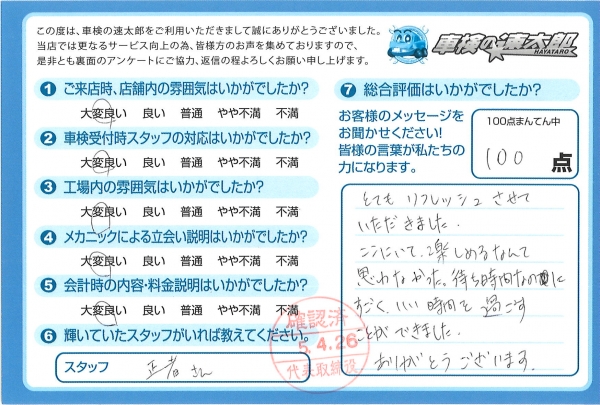 この度は、車検の速太郎をご利用いただきまして誠にありがとうございました。
当店では更なるサービス向上の為、皆様方のお声を集めておりますので、
是非とも裏面のアンケートにご協力、返信の程よろしくお願い申し上げます。
車検の速太郎
HAYATARO
1 ご来店時、店舗内の雰囲気はいかがでしたか?
大変良い 良い 普通 やや不満 不満
2 車検受付時スタッフの対応はいかがでしたか?
大変良い 良い 普通 やや不満 不満
3 工場内の雰囲気はいかがでしたか?
大変良い 良い 普通 やや不満 不満
4 メカニックによる立会い説明はいかがでしたか?
大変良い 良い 普通 やや不満 不満
5 会計時の内容・料金説明はいかがでしたか?
大変良い 良い 普通 やや不満 不満
6 輝いていたスタッフがいれば教えてください。
スタッフ さん
確認済
5.4.26
代表取締役
7 総合評価はいかがでしたか?
お客様のメッセージを
お聞かせください!
皆様の言葉が私たちの
力になります。
100点まんてん中
100 点
とても リフレッシュ させて
いただきました.
ここにいて、楽しめるなんて
思わなかった。待ち時間なのに
すごく、いい 時間を 過ごす
ことができました.
ありがとうございます.